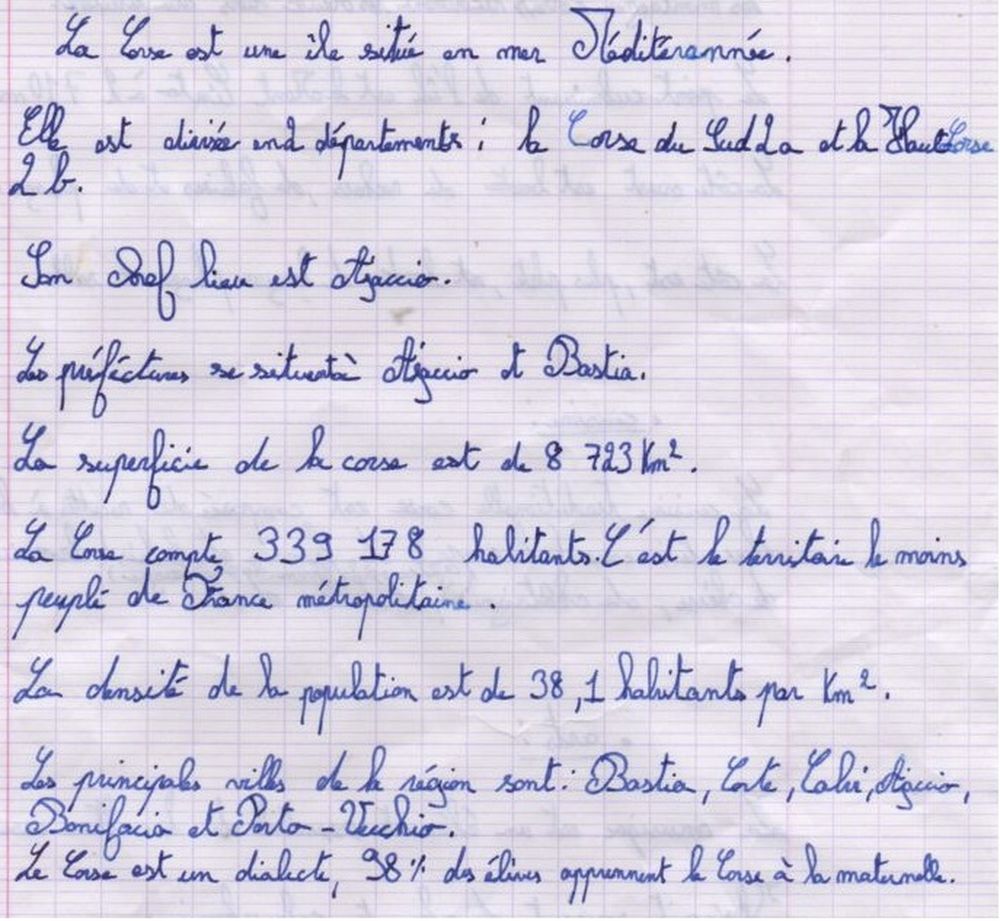 La Corse est une île situé en mer Méditérannée.
Elle est divisée en 2 départements : la Corse du Sud 2a et la Haute Corse
2 b.
Son chef lieu est Ajaccio.
Les préféctures se situent à Ajaccio et Bastia.
La superficie de la corse est de 8 723 Km².
La Corse compte 339 178 habitants. C'est le territoire le moins
peuplé de France métropolitaine.
La densité de la population est de 38,1 habitants par Km².
Les principales villes de la région sont : Bastia, Corte, Calvi, Ajaccio,
Bonifacio et Porto-Vecchio.
Le Corse est un dialecte, 98 % des élèves apprennent le Corse à la maternelle.